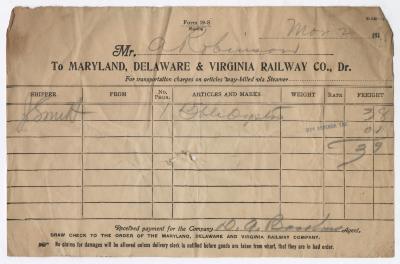 Form 19-S
Nov 2 191
Mr. A Robinson
To MARYLAND, DELAWARE & VIRGINIA RAILWAY CO., Dr.
For transportation charges on articles way-billed via Steamer
SHIPPER FROM No. PKGS. ARTICLES AND MARKS WEIGHT RATE FREIGHT
J Smith 1 Bbl Oysters 38
01
39
Received payment for the Company D. A. Agent.
DRAW CHECK TO THE ORDER OF THE MARYLAND, DELAWARE AND VIRGINIA RAILWAY COMPANY.
No claims for damages will be allowed unless delivery clerk is notified before goods are taken from wharf, that they are in bad order.